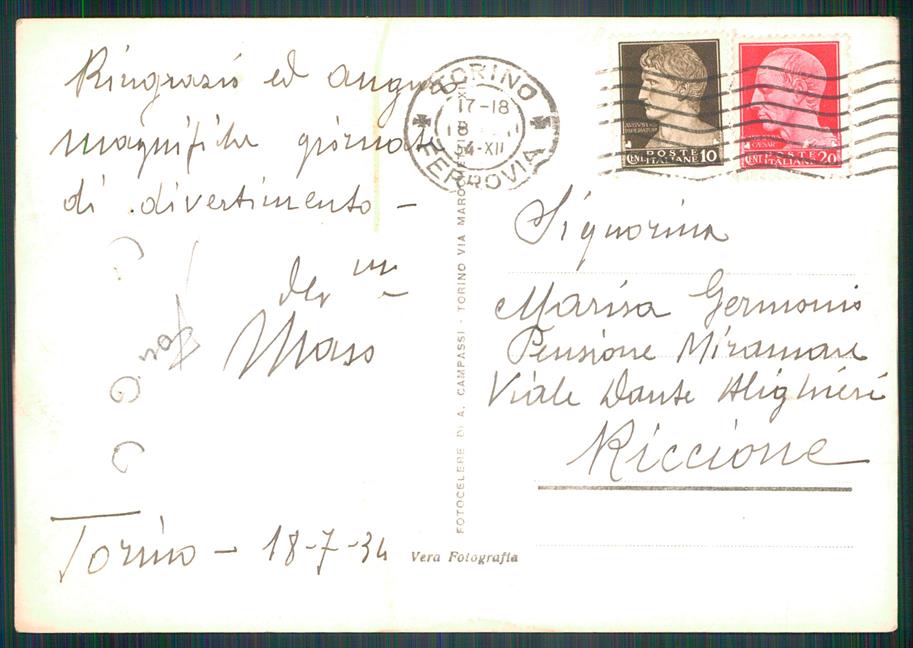 Ringrazio ed auguro
magnifiche giornate
di divertimento -
Maso
Torino - 18-7-34
TORINO
17-18
18
34-XII
FERROVIA
AUGUSTUS
IMPERATOR
POSTE
CENT. ITALIANE 10
CAESAR
POSTE
CENT. ITALIANE 20
Signorina
Marisa Germonio
Pensione Miramare
Viale Dante Alighieri
Riccione
FOTOCELERE DI A. CAMPASSI - TORINO VIA
Vera Fotografia